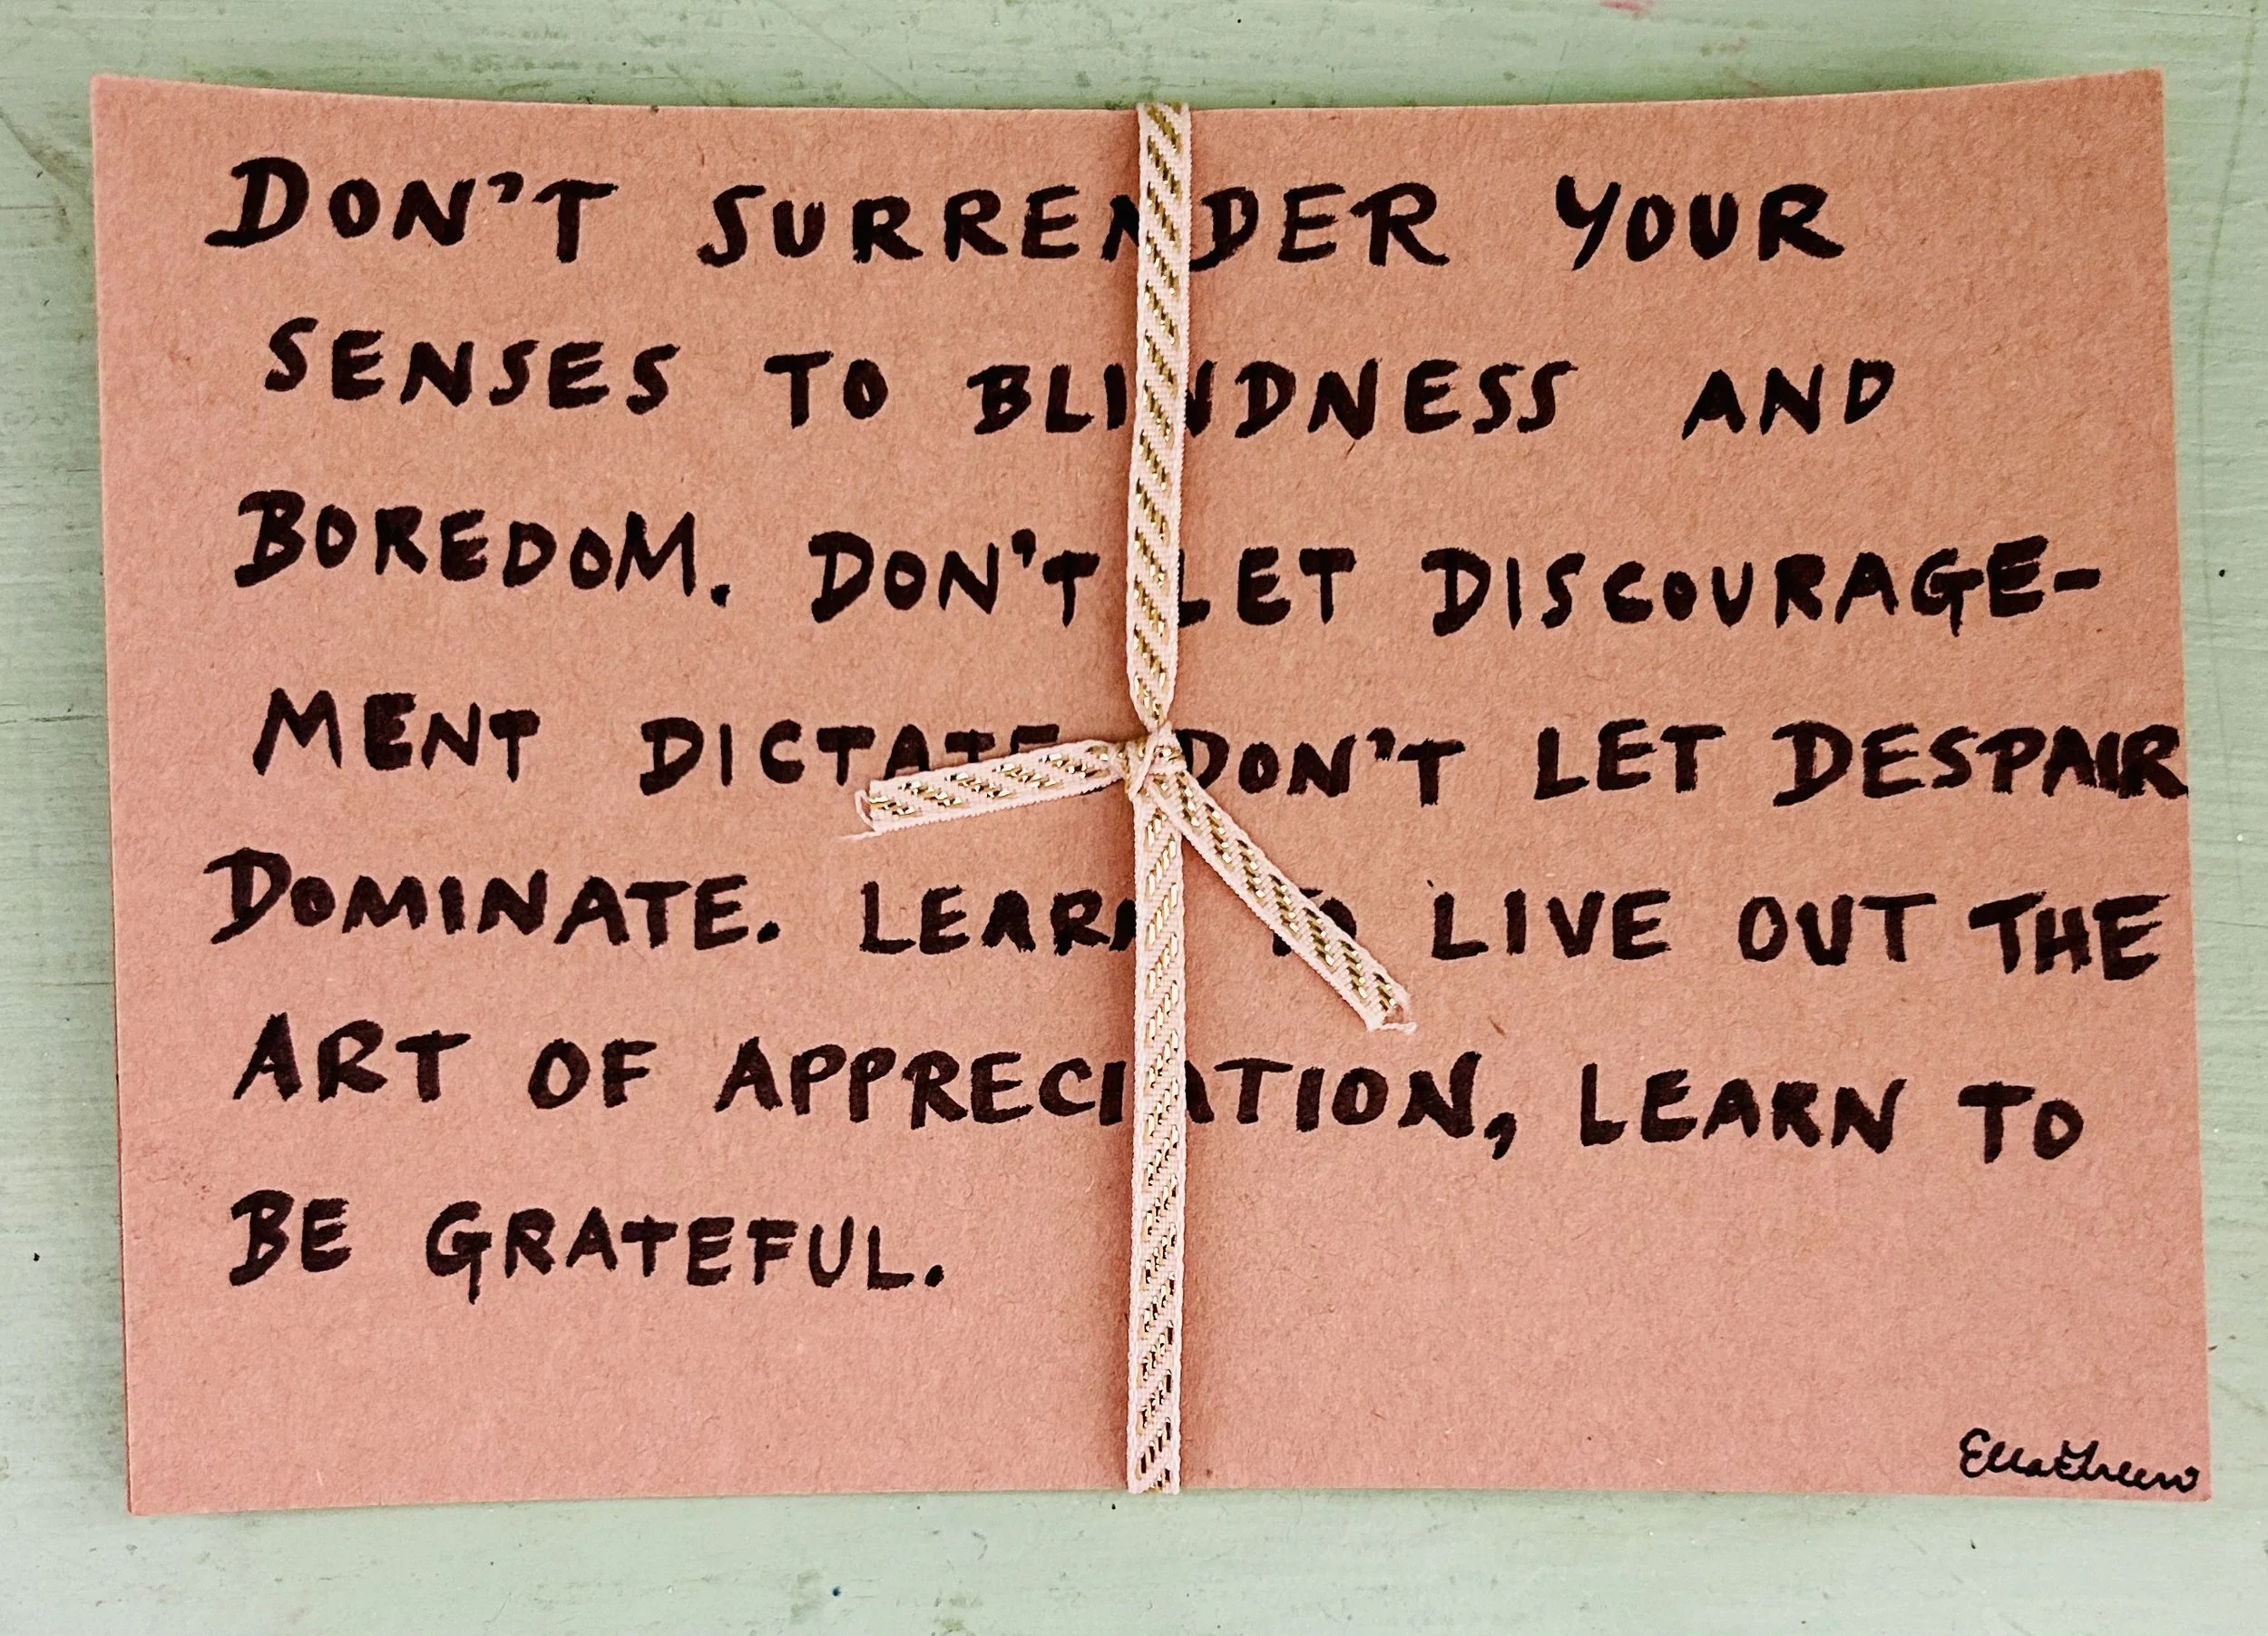 DON'T SURRENDER YOUR
SENSES TO BLINDNESS AND
BOREDOM. DON'T LET DISCOURAGE-
MENT DICTATE DON'T LET DESPAIR
DOMINATE. LEARN TO LIVE OUT THE
ART OF APPRECIATION, LEARN TO
BE GRATEFUL.